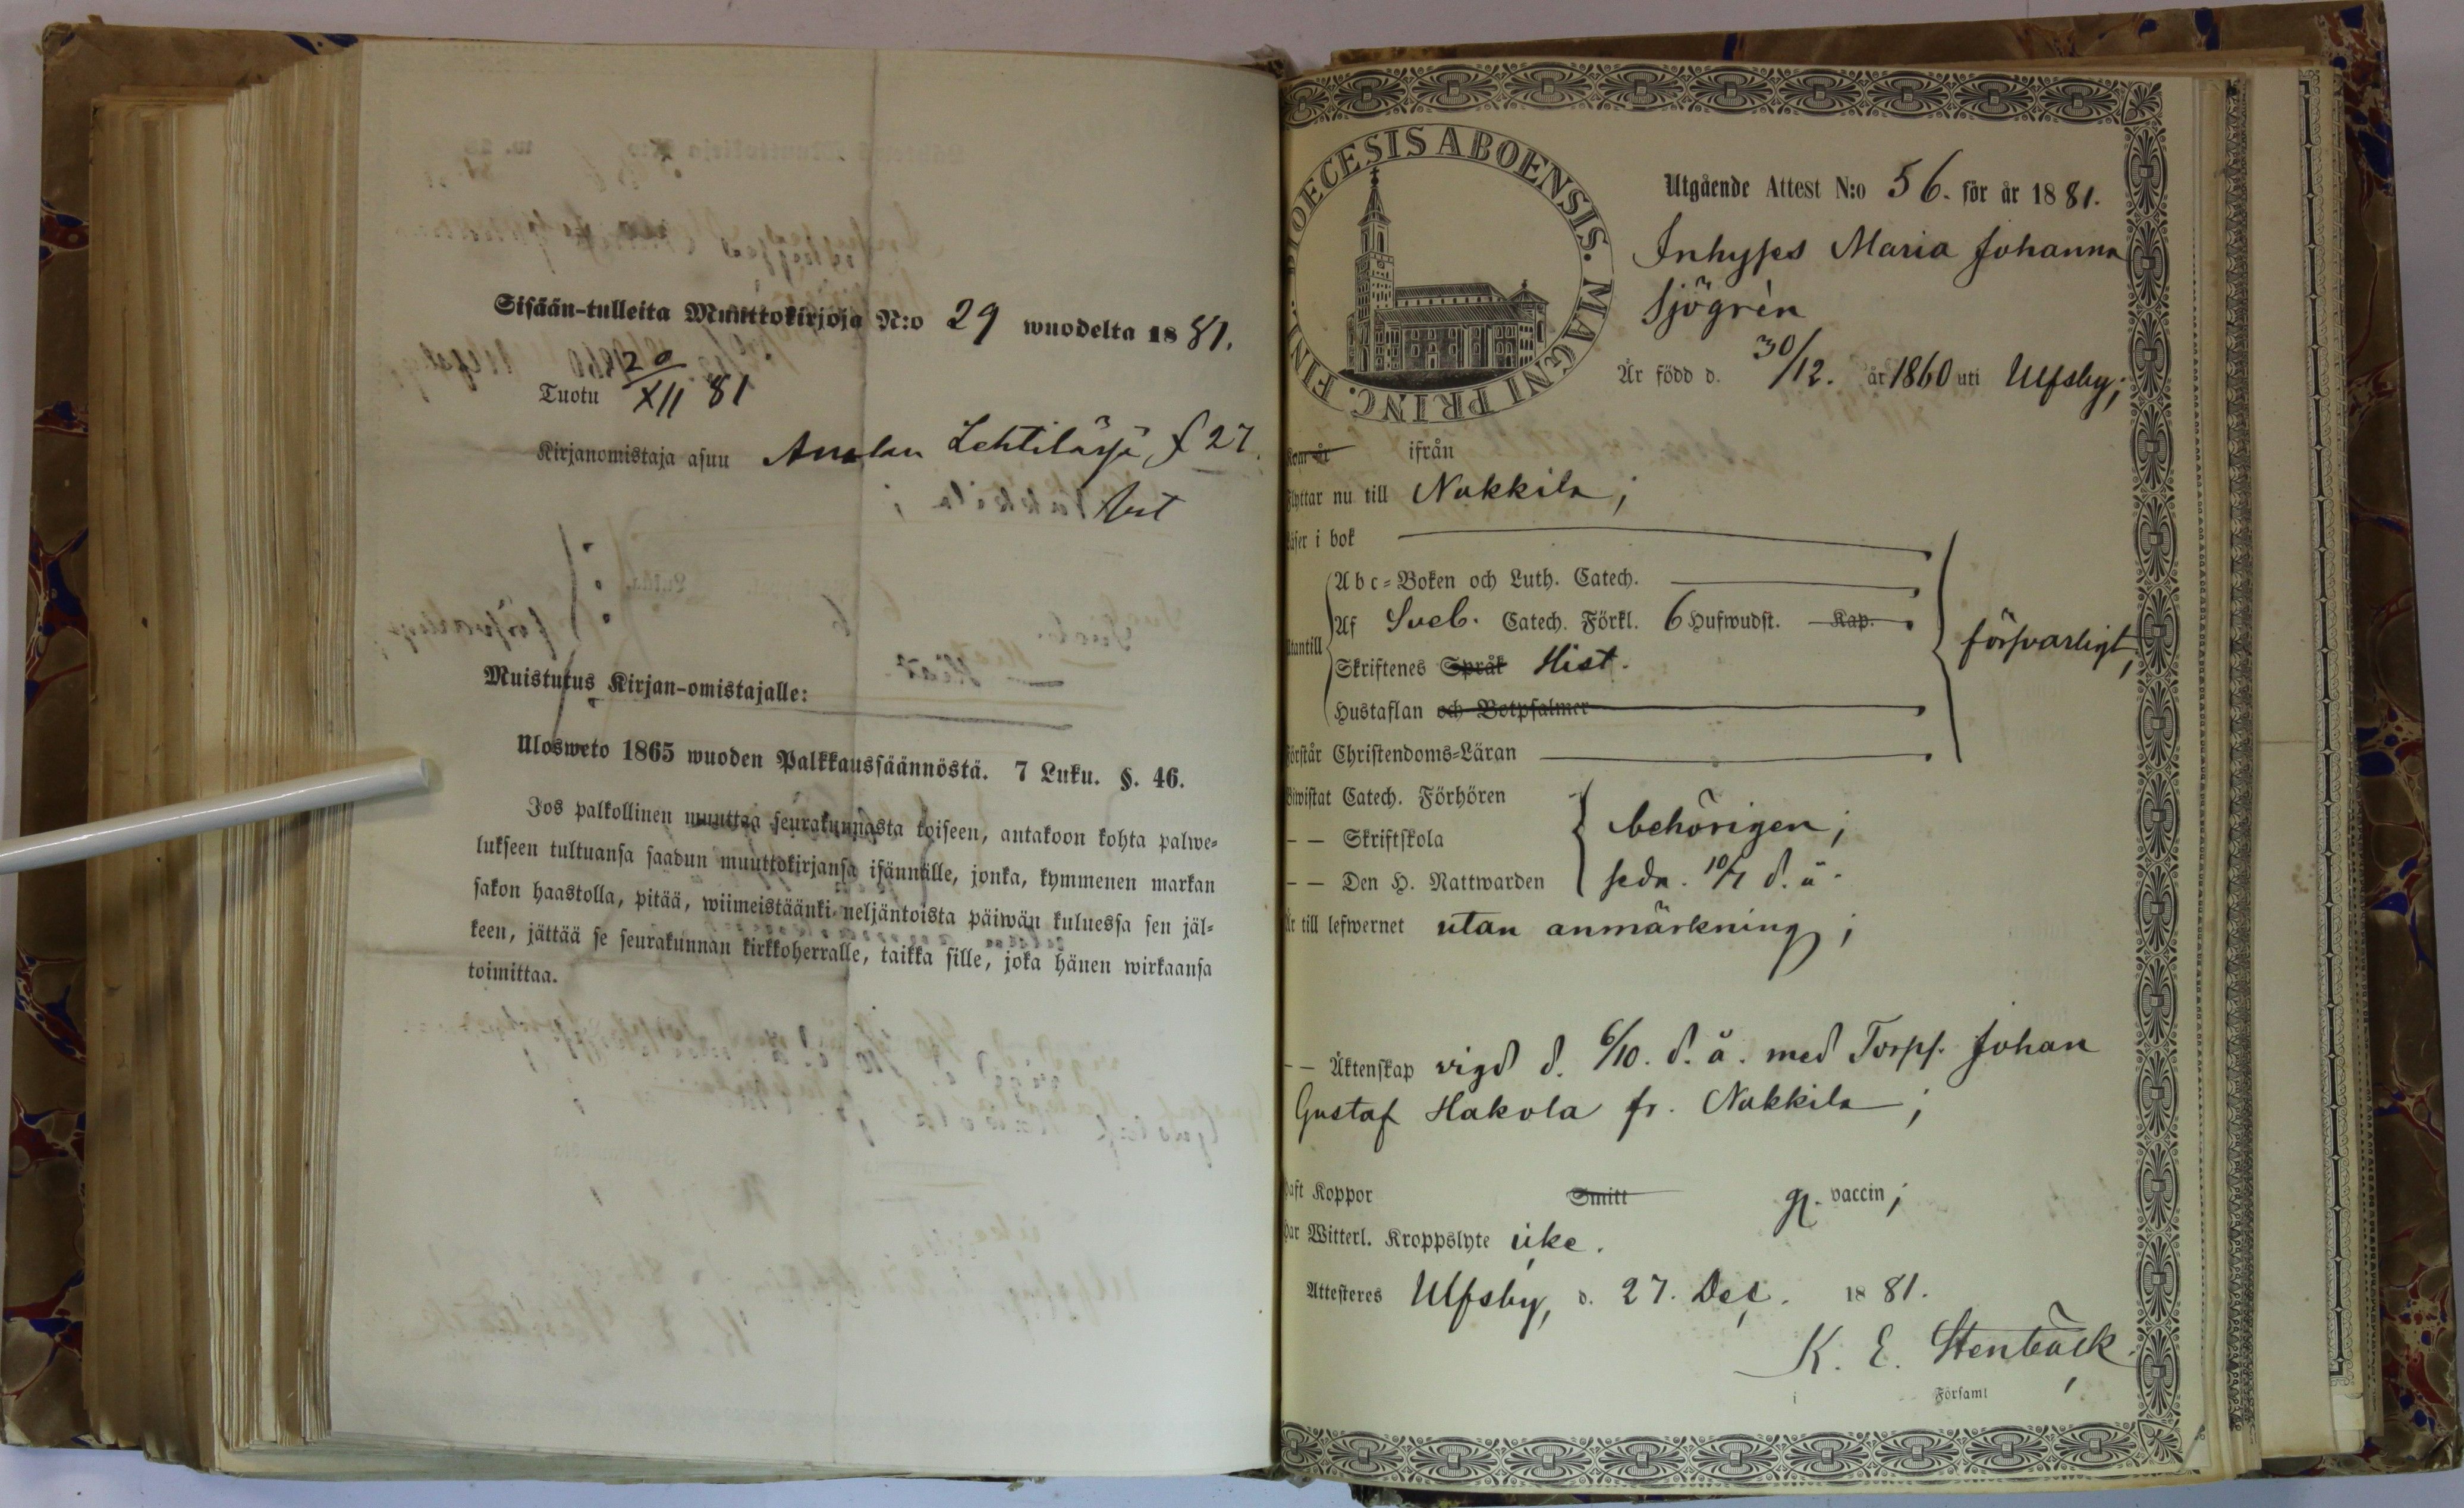 Sisään-tulleita Muuttokirjoja N:o 29 wuodelta 1881.
Tuotu 20/XII 81
Kirjanomistaja asuu Anolan Lehtilässä, f 27.
Muistutus Kirjan-omistajalle:
Ulosweto 1865 wuoden Palkkaussäännöstä. 7 Luku. §. 46.
Jos palkollinen muuttaa seurakunnasta toiseen, antakoon kohta palwe-
lukseen tultuansa saadun muuttokirjansa isännälle, jonka, kymmenen markan
sakon haastolla, pitää, wiimeistäänki neljäntoista päiwän kuluessa sen jäl-
keen, jättää se seurakunnan kirkkoherralle, taikka sille, joka hänen wirkaansa
toimittaa.
DIOECESIS ABOENSIS. MAGNI PRINC. FINL.
Utgående Attest N:o 56. för år 1881.
Inhyses Maria Johanna
Sjögrèn
Är född d. 30/12. år 1860 uti Ulfsby;
Kom år ifrån
Flyttar nu till Nakkila;
Läser i bok
Utantill
Abc-Boken och Luth. Catech.
Af Sveb. Catech. Förkl. 6 Hufwudst. Kap.
Skriftenes Språk Hist.
Hustaflan och Botpsalmer
försvarligt;
Förstår Christendoms-Läran
Biwistat Catech. Förhören
— — Skriftskola behörigen;
— — Den H. Nattwarden sedn. 10/7 d. å.
Är till lefwernet utan anmärkning;
— — Äktenskap vigd d. 6/10. d. å. med Torpf. Johan
Gustaf Hakola fr. Nakkila;
Haft Koppor Smitt g. vaccin;
Har Witterl. Kroppslyte icke.
Attesteres Ulfsby, d. 27. Dec. 1881.
K. E. Stenbäck.
i Församl